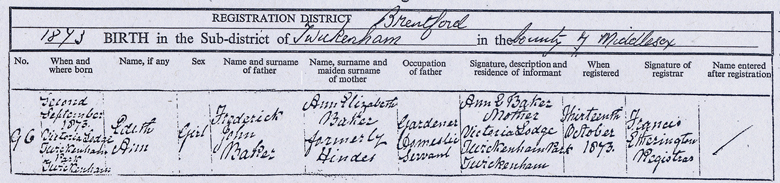 REGISTRATION DISTRICT Brentford
1873 BIRTH in the Sub-district of Twickenham in the County of Middlesex
No. When and where born Name, if any Sex Name and surname of father Name, surname and maiden surname of mother Occupation of father Signature, description and residence of informant When registered Signature of registrar Name entered after registration
96
Second September 1873 Victoria Lodge Twickenham Park Twickenham
Edith Ann
Girl
Frederick John Baker
Ann Elizabeth Baker formerly Hindes
Gardener Domestic Servant
Ann E Baker Mother Victoria Lodge Twickenham Park Twickenham
Thirteenth October 1873.
Francis Etherington Registrar